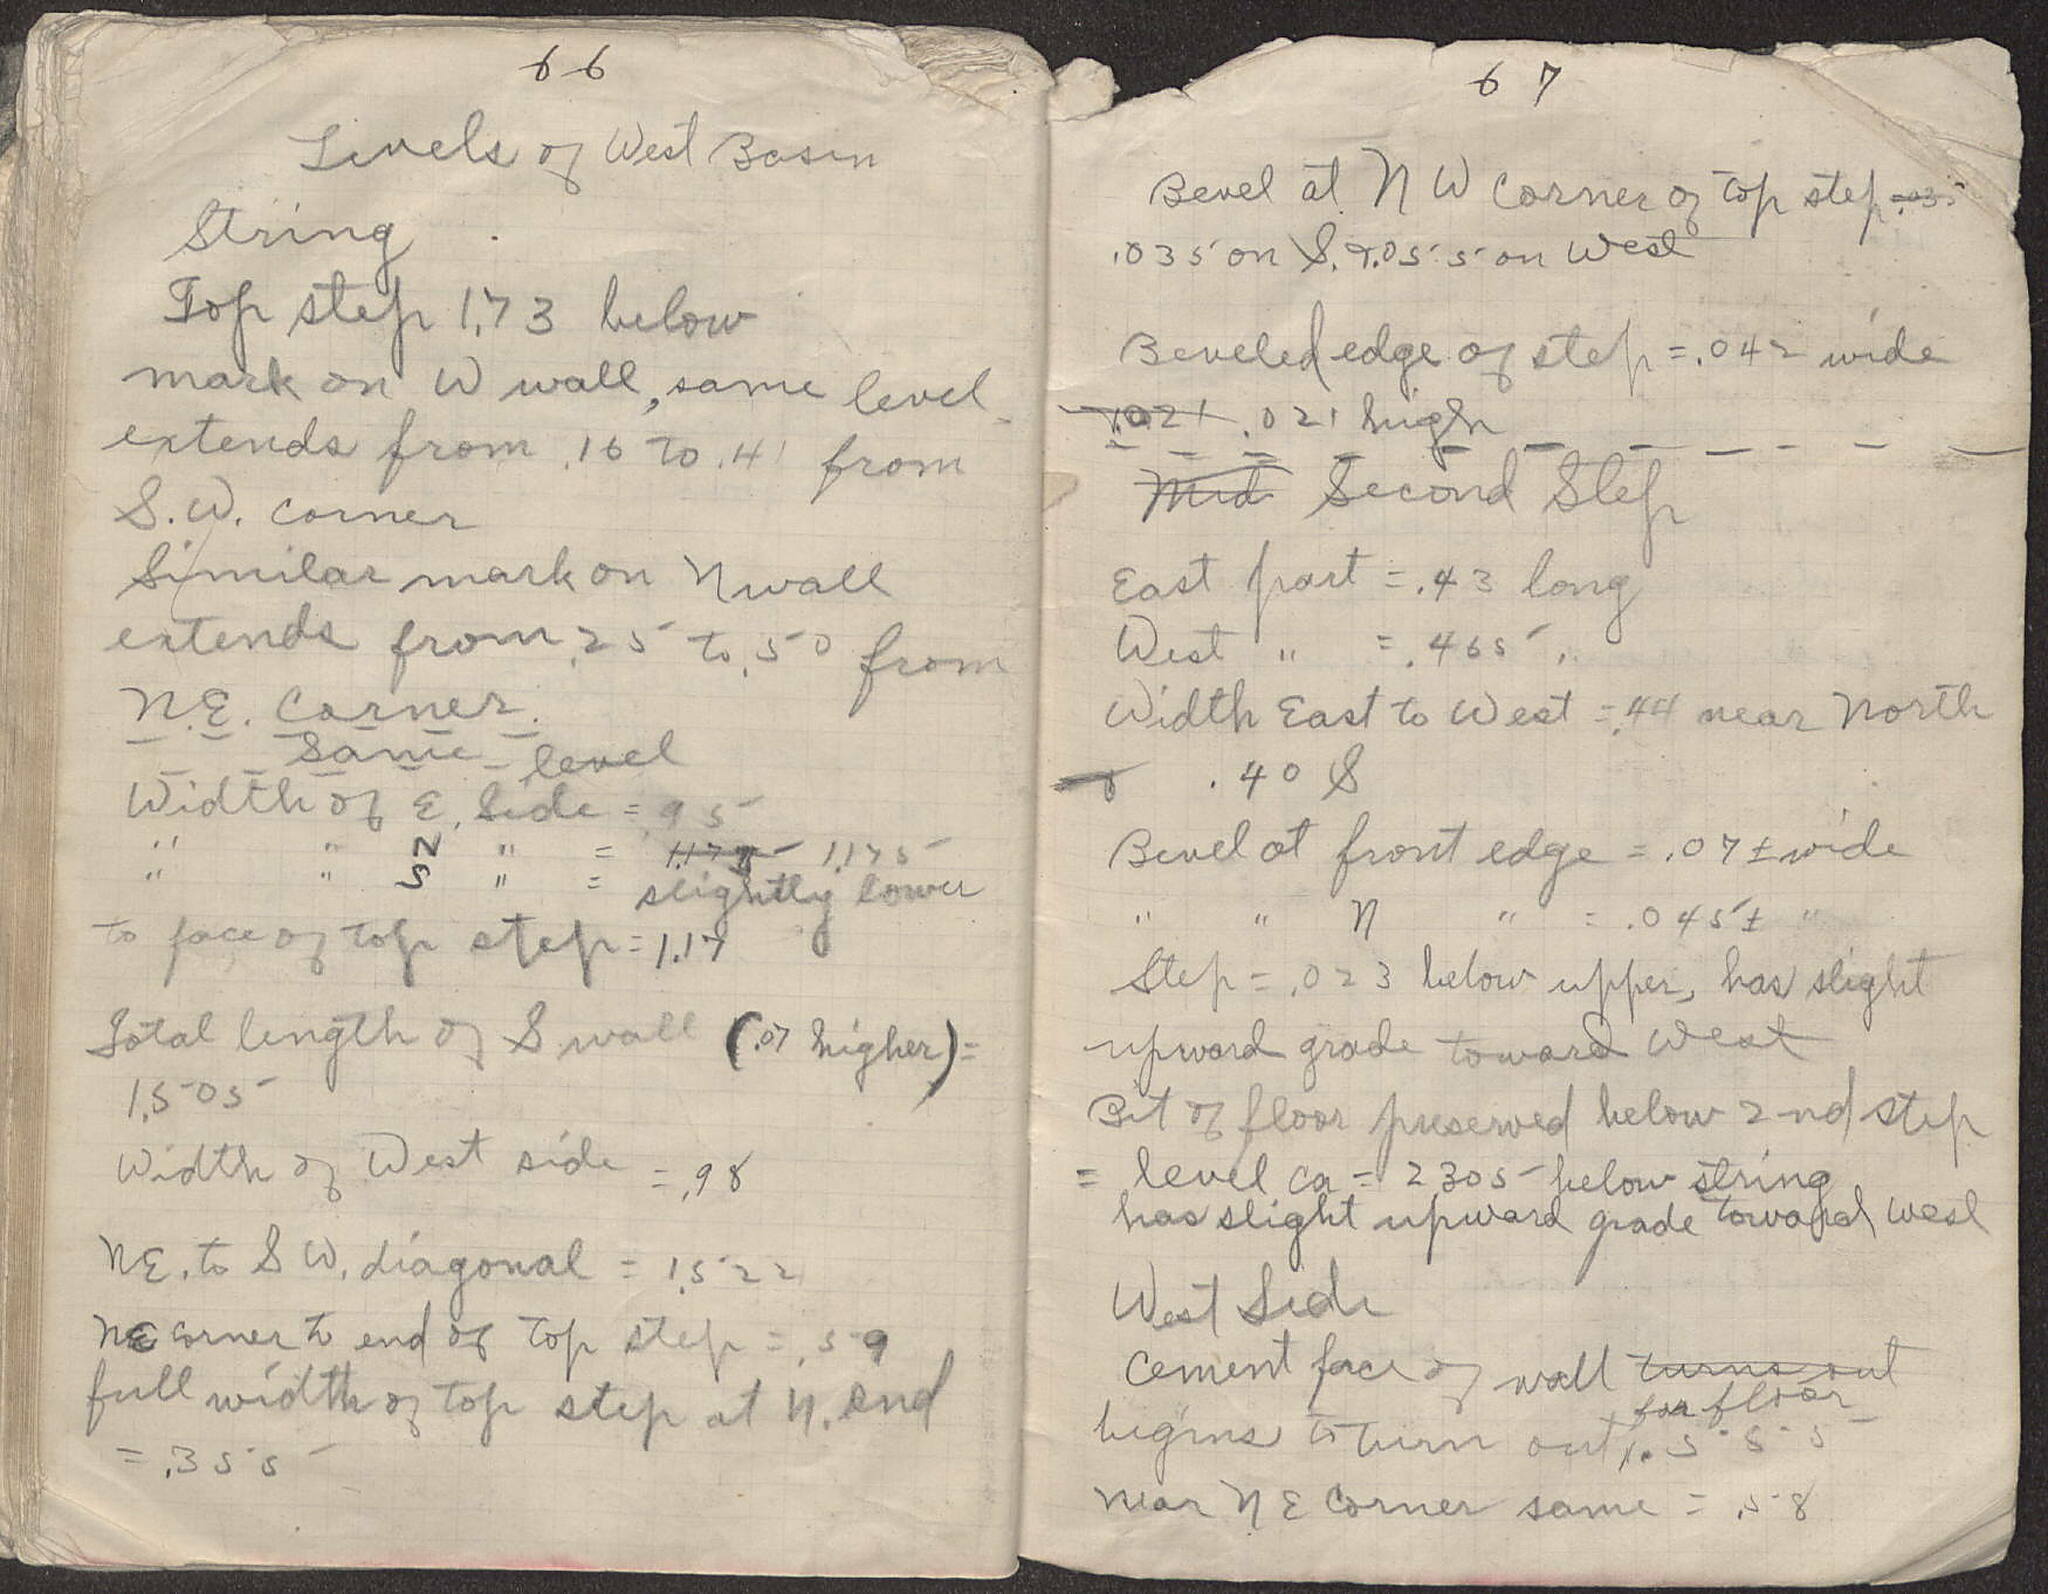 66
Levels of West Basin
String
Top step 1.73 below
mark on W wall, same level
extends from .16 to .41 from
S.W. corner
Similar mark on N wall
extends from .25 to .50 from
N.E. Corner.
Same level
Width of E. Side = .95
" " N " = 1.175
" " S " = slightly lower
to face of top step = 1.17
Total length of S wall (.07 higher) =
1.505
Width of West side = .98
NE. to SW. diagonal = 1.522
NE corner to end of top step = .59
full width of top step at N. end
= .355
67
Bevel at NW corner of top step .035
.035 on S. & .055 on West
Beveled edge of step = .042 wide
.021 .021 high
Mid Second Step
East part = .43 long
West " = .465 "
Width East to West = .44 near North
.40 S
Bevel at front edge = .07 ± wide
" " N " = .045 ± "
Step = .023 below upper, has slight
upward grade toward West
Bit of floor preserved below 2nd step
= level ca = 2305 below string
has slight upward grade toward west
West Side
Cement face of wall turns out
for floor
begins to turn out .555
Near NE Corner same = .58